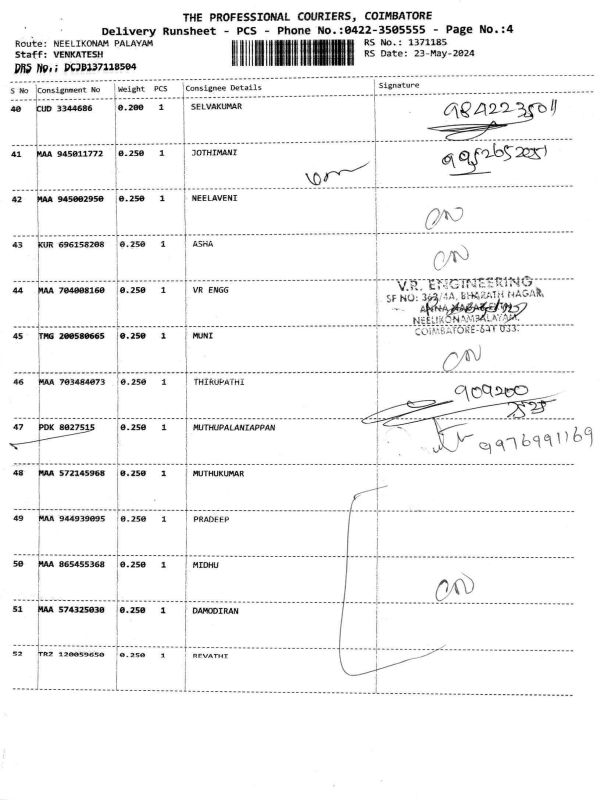 THE PROFESSIONAL COURIERS, COIMBATORE
Delivery Runsheet - PCS - Phone No.:0422-3505555 - Page No.:4
Route: NEELIKONAM PALAYAM RS No.: 1371185
Staff: VENKATESH RS Date: 23-May-2024
DRS No.: DCJB137118504
S No Consignment No Weight PCS Consignee Details Signature
40 CUD 3344686 0.200 1 SELVAKUMAR 9842235011
41 MAA 945011772 0.250 1 JOTHIMANI 9952652051
42 MAA 945002950 0.250 1 NEELAVENI CN
43 KUR 696158208 0.250 1 ASHA CN
44 MAA 704008160 0.250 1 VR ENGG
V.R. ENGINEERING
SF NO: 363/4A, BHARATH NAGAR,
ANNA
NEELIKONAMBALAYAM,
COIMBATORE-641 033.
45 TMG 200580665 0.250 1 MUNI CN
46 MAA 703484073 0.250 1 THIRUPATHI 909200
2525
47 PDK 8027515 0.250 1 MUTHUPALANIAPPAN 9976991169
48 MAA 572145968 0.250 1 MUTHUKUMAR
49 MAA 944939095 0.250 1 PRADEEP
50 MAA 865455368 0.250 1 MIDHU CN
51 MAA 574325030 0.250 1 DAMODIRAN
52 TRZ 120059650 0.250 1 REVATHI